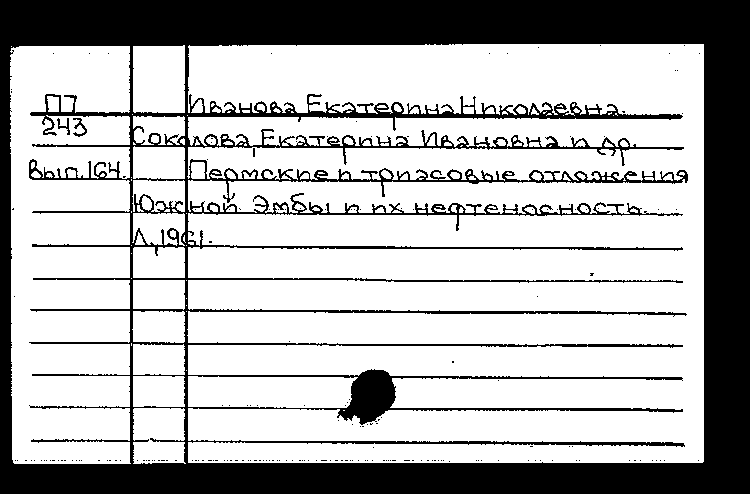 П7 Иванова, Екатерина Николаевна.
243 Соколова, Екатерина Ивановна и др.
Вып.164. Пермские и триасовые отложения
Южной Эмбы и их нефтеносность.
Л., 1961.